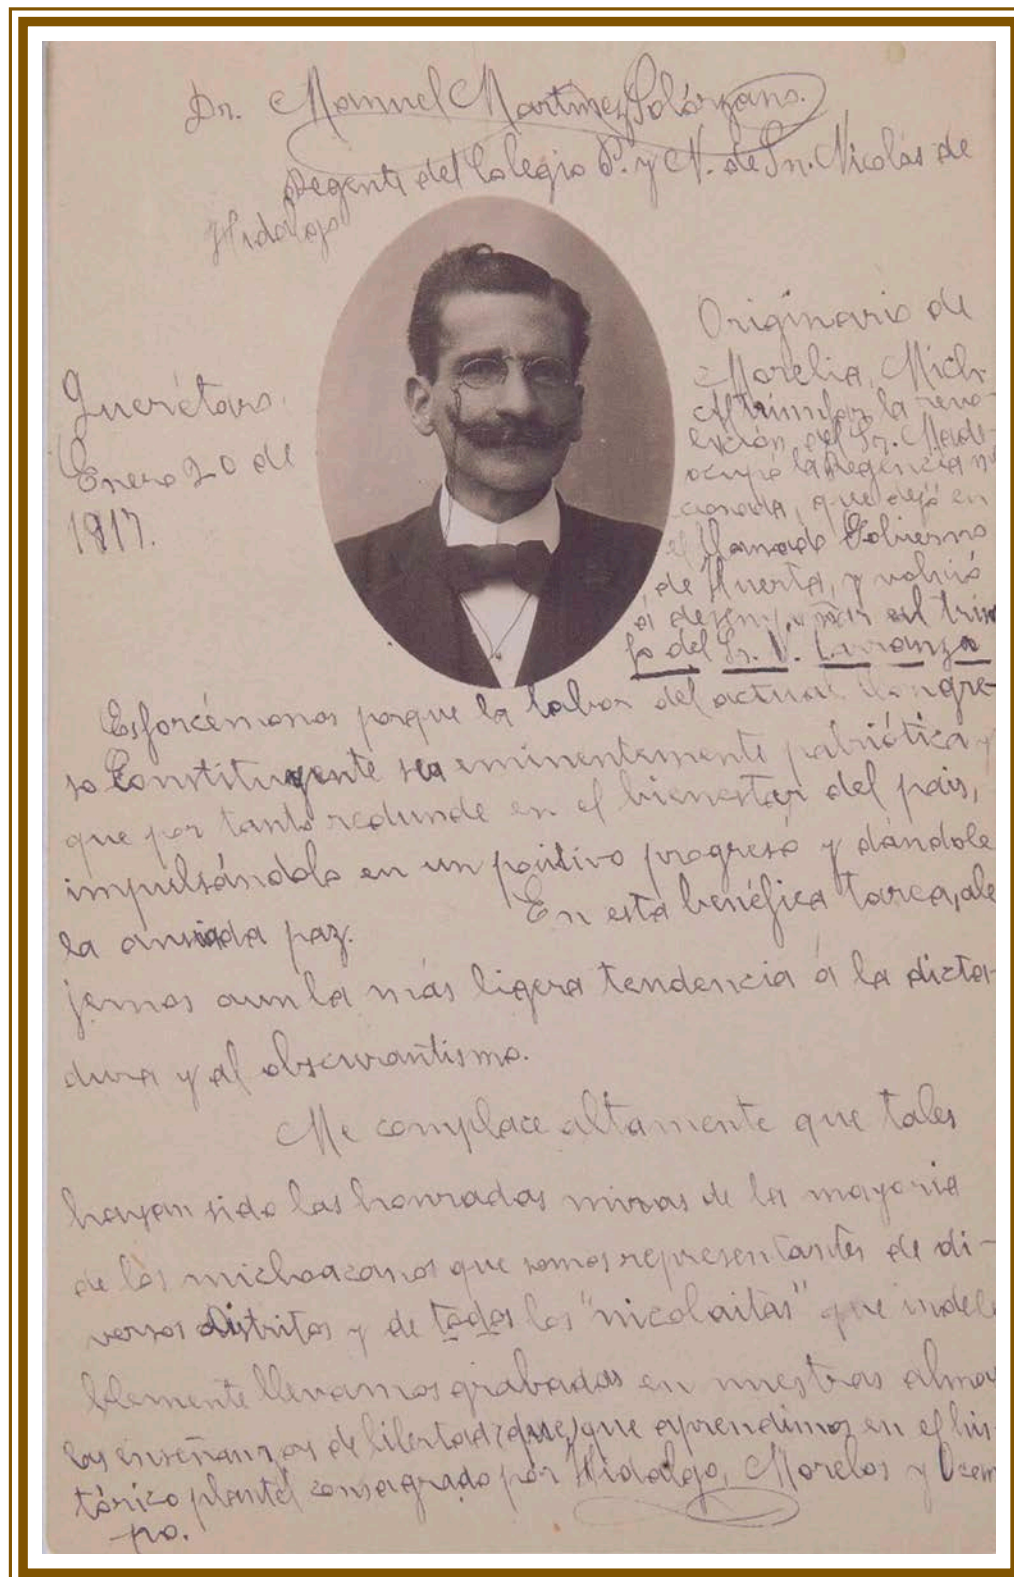 Dr. Manuel Martínez Solórzano.
Regente del Colegio P. y N. de Sn. Nicolás de
Hidalgo
Querétaro.
Enero 20 de
1917.
Originario de
Morelia, Mich.
Al triunfar la revo-
lución del Sr. Made-
ocupó la Regencia
cionada, que dejó en
el llamado Gobierno
de Huerta, y volvió
á desempeñar al triun
fo del Sr. V. Carranza
Esforcémonos porque la labor del actual Congre-
so Constituyente sea eminentemente patriótica y
que por tanto redunde en el bienestar del país,
impulsándolo en un positivo progreso y dándole
la ansiada paz. En esta benéfica tarea, ale
jemos aun la más ligera tendencia á la dicta-
dura y al obscurantismo.
Me complace altamente que tales
hayan sido las honradas miras de la mayoría
de los michoacanos que somos representantes de di-
versos Distritos y de todos los "nicolaitas" que indele
blemente llevamos grabadas en nuestras almas
las enseñanzas de libertad que aprendimos en el his-
tórico plantel consagrado por Hidalgo, Morelos y Ocam
po.